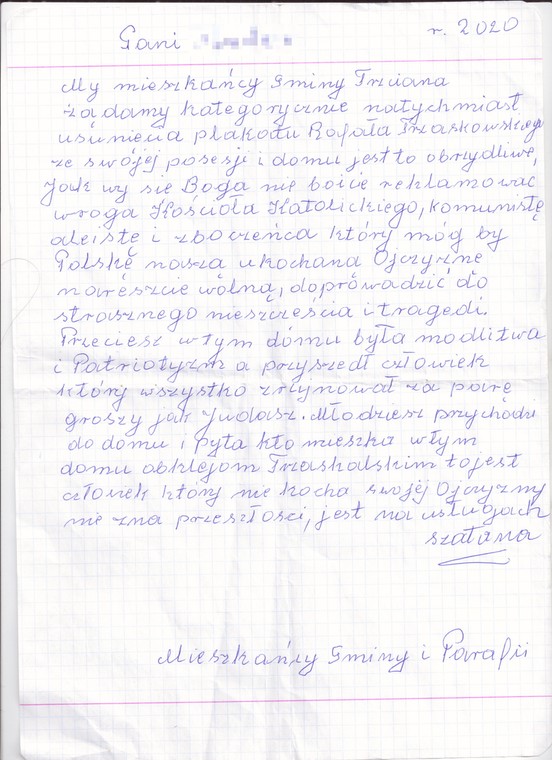 r. 2020
Pani
My mieszkańcy Gminy Trzciana
żądamy kategorycznie natychmiast
usunięcia plakatu Rafała Trzaskowskiego
ze swojej posesji i domu jest to obrzydliwe,
Jak wy się Boga nie boicie reklamować
wroga Kościoła Katolickiego, komunistę
ateistę i zboczeńca który mógł by
Polskę naszą ukochaną Ojczyznę
nareszcie wolną, doprowadzić do
strasznego nieszczęścia i tragedi.
Przeciesz w tym domu była modlitwa
i Patriotyzm a przyszedł człowiek
który wszystko zrujnował za parę
groszy jak Judasz. Młodziesz przychodzi
do domu i pyta kto mieszka w tym
domu obklejom Trzaskalskim to jest
człowiek który nie kocha swojej Ojczyzny
nie zna przeszłości, jest na usługach
szatana
Mieszkańcy Gminy i Parafii